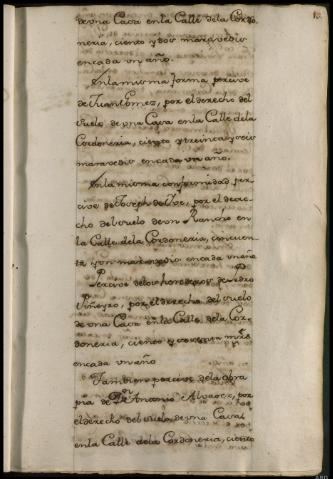 de una Casa en la Calle de la Cordo
neria, ciento y dos maravedis
en cada un año.
En la misma forma percive
de Juan Gomez, por el derecho del
suelo de una Casa en la Calle de la
Cordoneria, ciento y treinta y seis
maravedis en cada un año.
En la misma conformidad per
cive de Joseph de por el derec
cho del suelo de un en
la Calle de la Cordoneria, cincuen
ta y un maravedis en cada un año
Percive de los herederos de Pedro
Piñeyro, por el derecho del suelo
de una Casa en la Calle de la Cor
doneria, ciento y mrs
en cada un año
Tambien percive de la obra
pia de Dn Antonio Alvarez, por
el derecho del suelo de una Casa
en la Calle de la Cordoneria, ciento